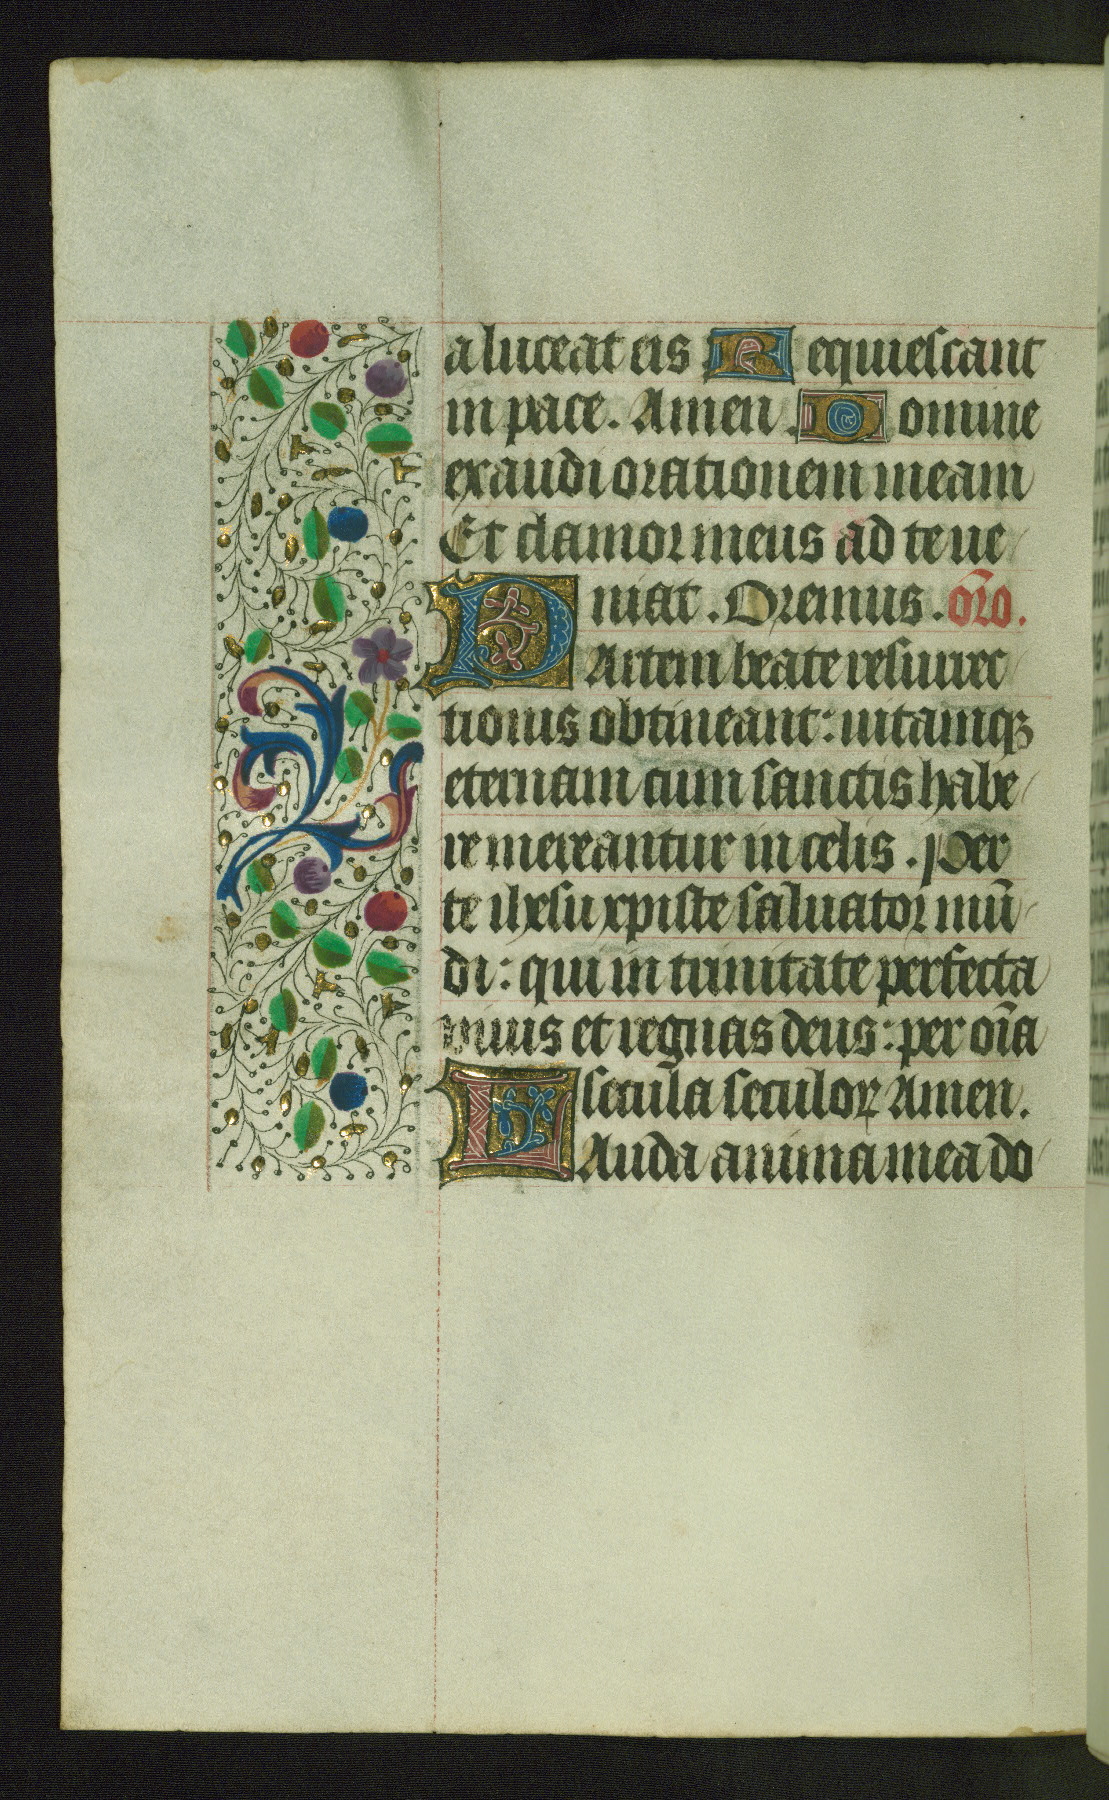 a luceat eis Requiescant
in pace. Amen. Domine
exaudi orationem meam
Et clamor meus ad te ue
niat. Oremus. oro.
Partem beate resurrec
tionis obtineant: uitamqȝ
eternam cum sanctis habe
re mereantur in celis. Per
te ihesu xpiste saluator mū
di: qui in trinitate perfecta
viuis et regnas deus: per oīa
secula seculoꝝ Amen.
Lauda anima mea do